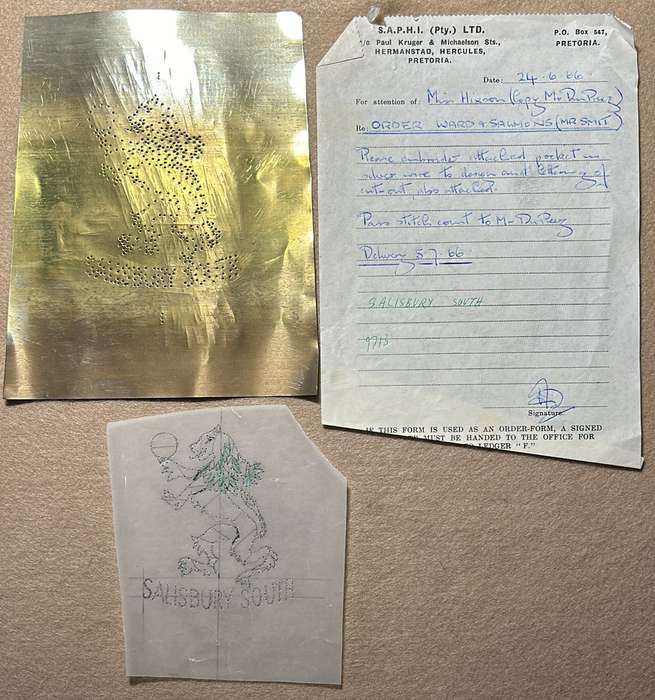 S.A.P.H.I. (Pty.) LTD.
c/o Paul Kruger & Michaelson Sts.,
HERMANSTAD, HERCULES,
PRETORIA.
P.O. Box 547,
PRETORIA.
Date: 24.6.66.
For attention of: Miss Hixson (Copy Mr Du Preez)
Re: ORDER WARD & SALMONS (MR SMIT)
Please embroider attached pocket in
silver wire to design and lettering of
cut out also attached.
Pass stitch count to Mr Du Preez
Delivery 5.7.66
SALISBURY SOUTH
9713
Signature.
IF THIS FORM IS USED AS AN ORDER-FORM, A SIGNED
MUST BE HANDED TO THE OFFICE FOR
LEDGER "F."
SALISBURY SOUTH